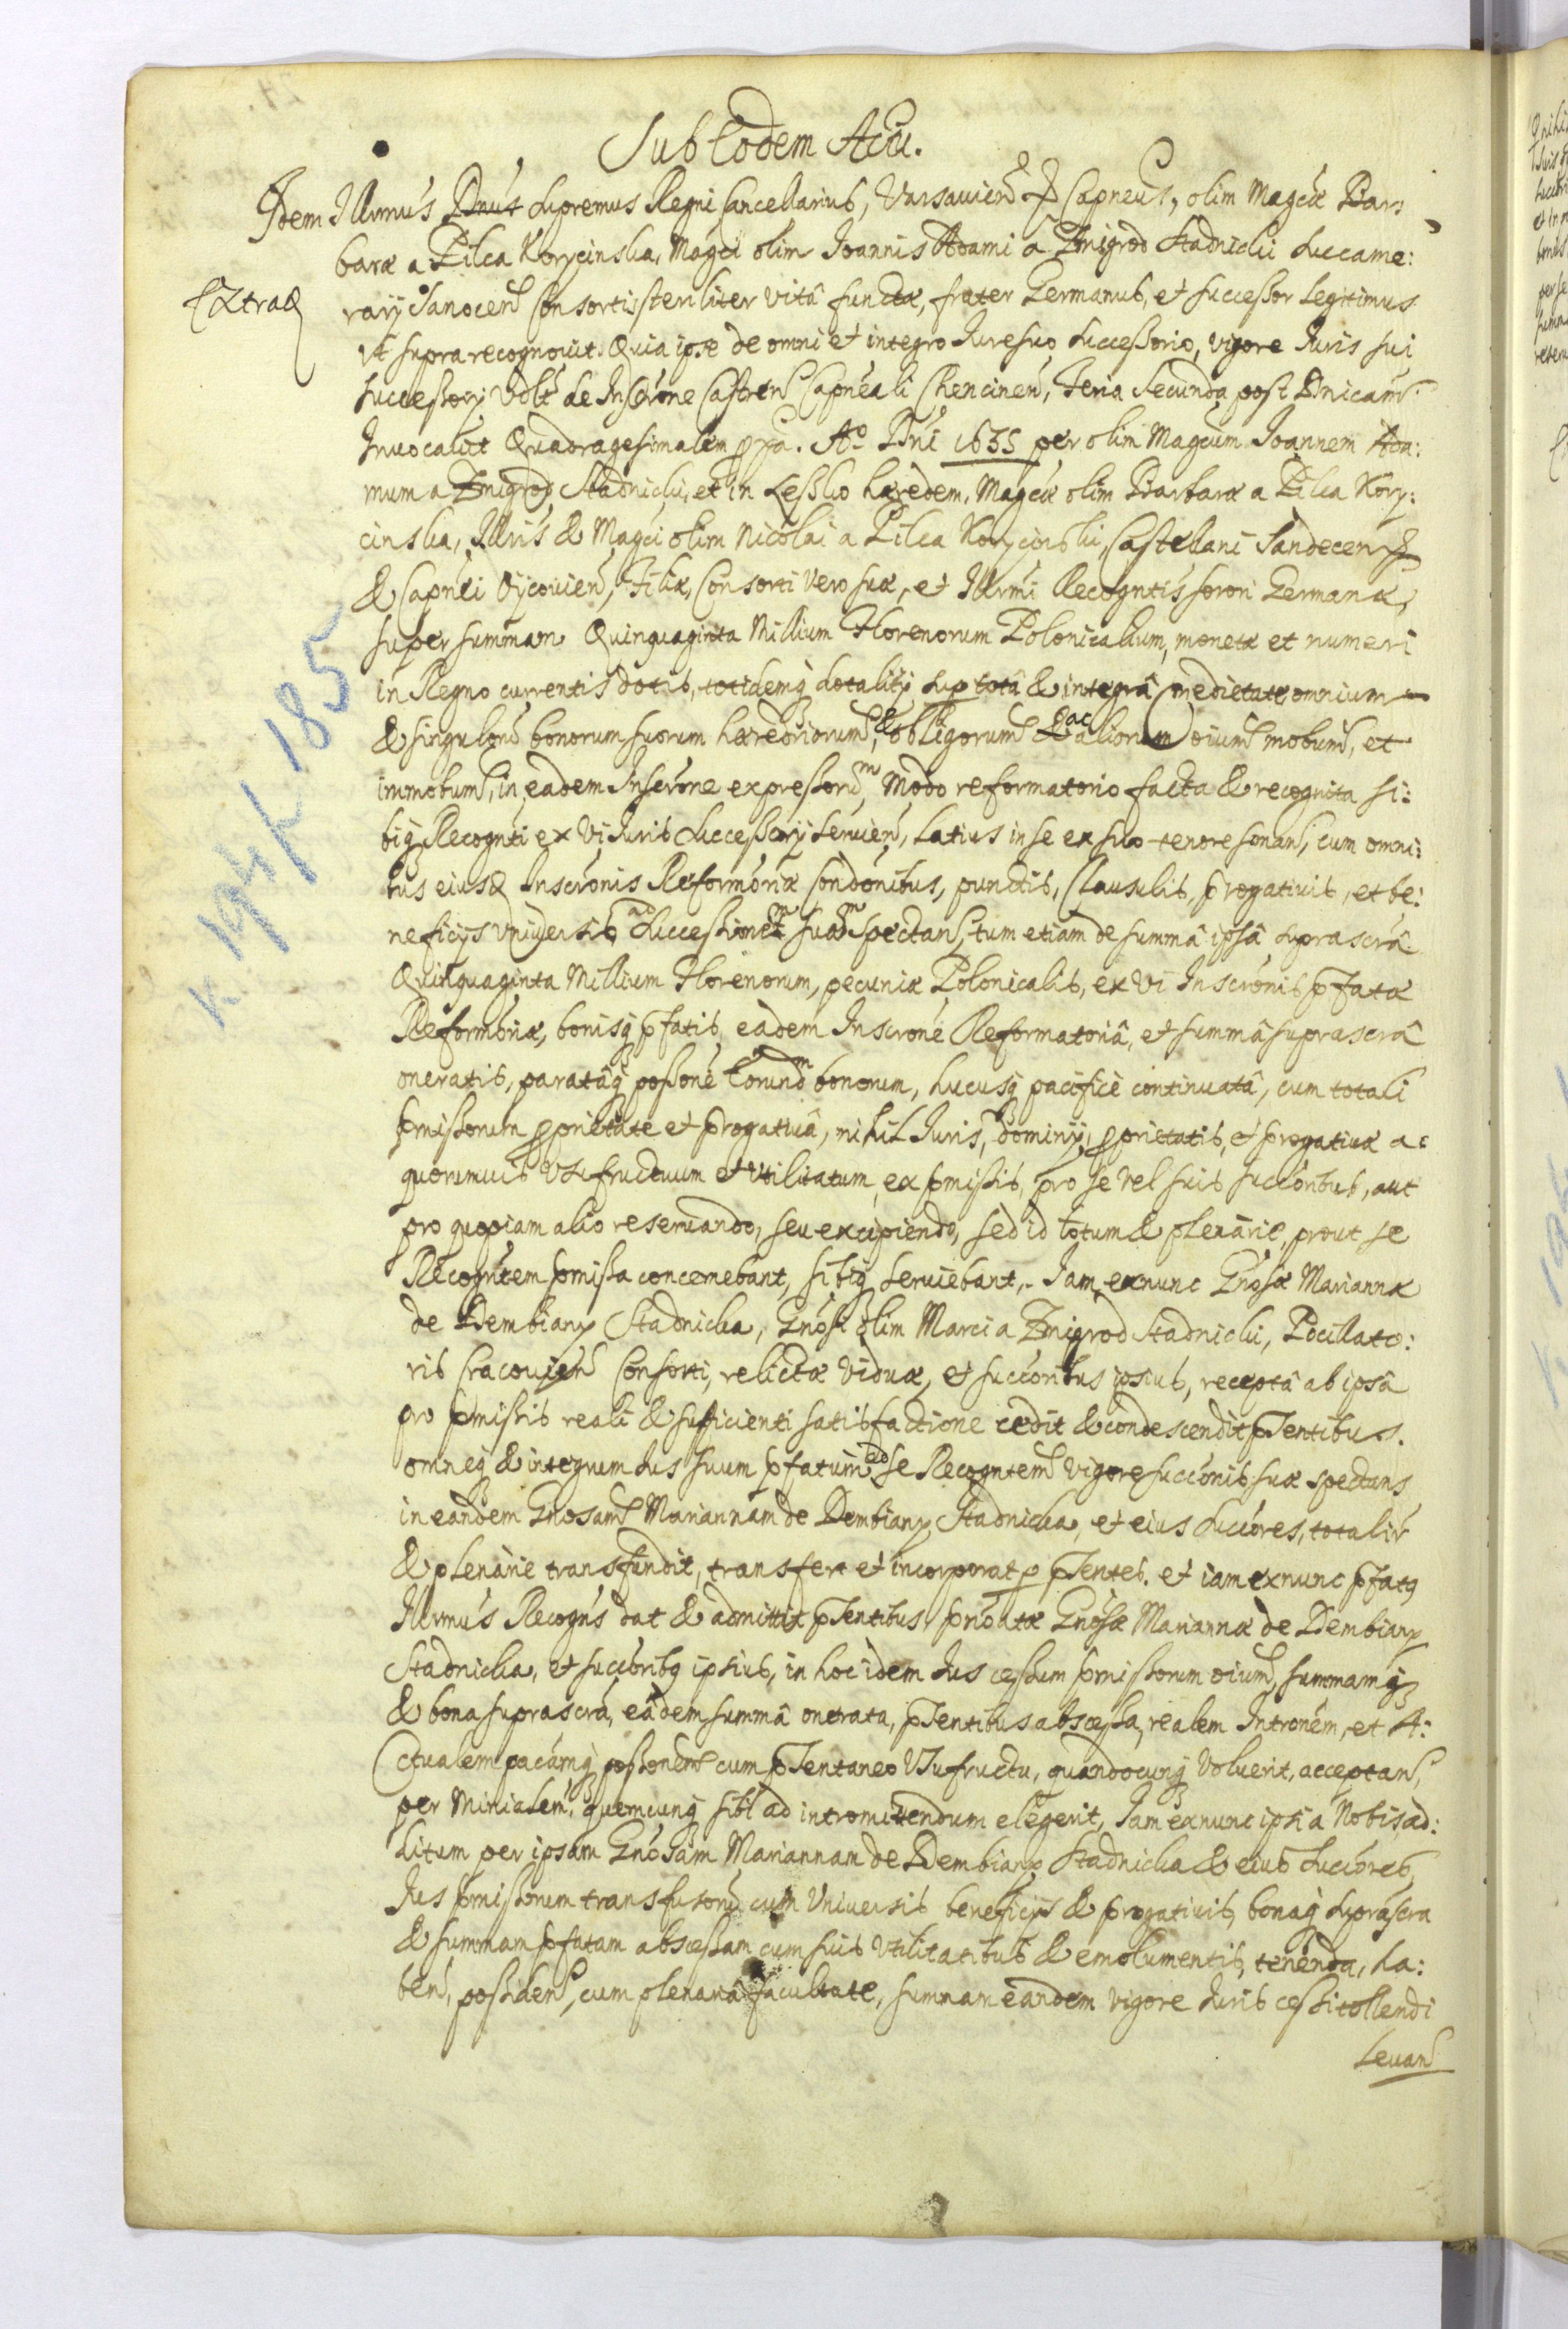 Sub Eodem Actu.
Idem Illrmus Dnus Supremus Regni Cancellarius, Varsavien &c Capneus, olim Magcae Bar:
barae a Pilca Korycinska, Magci olim Joannis Adami a Zmigrod Stadnicki Succame:
Extrad
rarij Sanocen Consortis steriliter vitâ functae, frater Germanus, et successor Legitimus
Vt supra recognovit. Quia ipse de omni et integro Iure suo Successorio, vigore Iuris sui
Successorij Vdlt de Inscrone Castren Capneali Chencinen, Feria Secunda post Dnicam
Invocavit Quadragesimalem pxa. Ao Dni 1635 per olim Magcum Joannem Ada:
mum a Zmigrod Stadnicki, et in Lessko haeredem, Magcae olim Barbarae a Pilca Kory:
cinska, Illris & Magci olim Nicolai a Pilca Korycinski, Castellani Sandecen &c
& Capnei Oycovien, Filiae, Consorti vero suae, et Illrmi Recogntis sorori Germanae,
super summam Quinquaginta Millium Florenorum Polonicalium, monetae et numeri
in Regno currentis dotis, totidemq dotalitij sup totâ & integrâ medietate omnium
& singulorum bonorum suorum haereditoriorum, & obligorum & ac aliorum oium mobum, et
immobum, in eadem Inscrone expressorum, Modo reformatorio facta & recognita si:
biq Recognti ex Vi Iuris Successorij servien, Latius in se ex suo tenore sonan, cum omni:
bus eiusd Inscronis Reformoriae Condonibus, punctis, Clausulis, progativis, et be:
neficijs universis ad Successionem suam spectan, tum etiam de summâ ipsâ suprascrâ
Quinquaginta Millium Florenorum, pecuniae Polonicalis, ex Vi Inscronis pfatae
Reformoriae, bonisq pfatis, eadem Inscrone Reformatoriâ, et summâ suprascrâ
oneratis, paratâq possone Eorundm bonorum, hucusq pacificè continuatâ, cum totali
pmissorum proprietate et progativâ, nihil Iuris, dominij, proprietatis, et progativae a:
quorumvis Vsufructuum et Vtilitatum, ex pmissis, pro se vel suis succoribus, aut
pro quopiam alio reservando, seu excipiendo, sed id totum & plenarie, prout se
Recogntem pmissa concernebant, sibiq serviebant, Iam exnunc Gnosae Mariannae
de Dembiany Stadnicka, Gnosi olim Marci a Zmigrod Stadnicki, Pocillato:
ris Cracovien Consorti, relictae Viduae, et succoribus ipsius, receptâ ab ipsâ
pro pmissis reali & sufficienti satisfactione cedit & condescendit pntibus.
omneq & integrum Ius suum pfatum ad se Recogntem vigore succonis suae spectans
in eandem Gnosam Mariannam de Dembiany Stadnicka, et eius Succores, totalir
& plenarie transfundit, transfert et incorporat p pntes. et iam exnunc pfatq
Illrmus Recogns dat & admittit pntibus, pnoatae Gnosae Mariannae de Dembiany
Stadnicka, et succoribq ipsius, in hoc idem Ius cessum pmissorum oium, summamq
& bona suprascra, eâdem summâ onerata, pntibus abscessa, realem Intronem, et A:
ctualem pacamq possonem cum pntaneo Vsufructu, quandocunq voluerit, acceptan,
per Mirialem, quemcunq sibi ad intromittendum elegerit, Iam exnunc ipsi a Nobis ad:
ditum per ipsam Gnosam Mariannam de Dembiany Stadnicka & eius Succores,
Ius pmissorum transfusorum cum Universis beneficijs & progativis, bonaq suprascra
& summam pfatam abscessam cum suis Vtilitatibus & emolumentis, tenenda, ha:
ben, possiden, cum plenariâ facultate, summam eandem vigore Iuris cessi tollendi
Levan
k 194 k 185